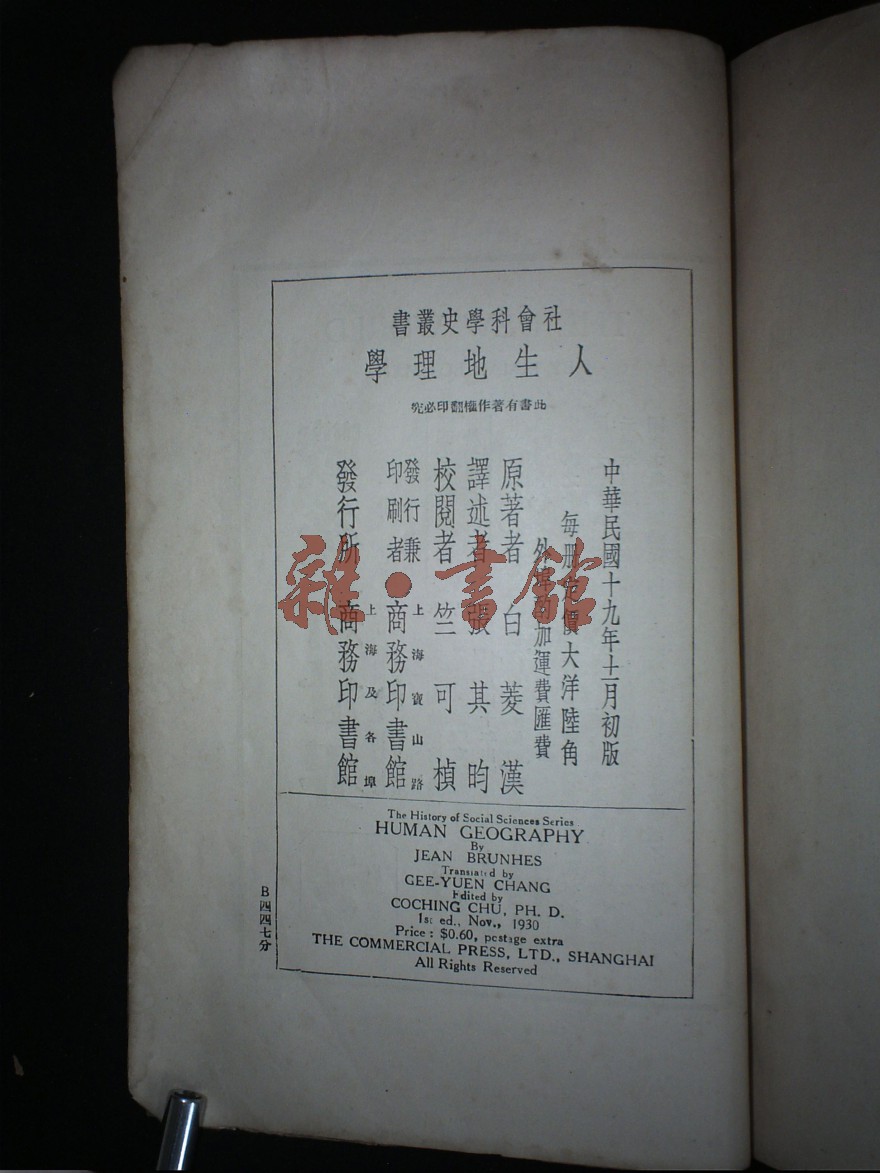 社會科學史叢書
人生地理學
此書有著作權翻印必究
中華民國十九年十一月初版
每册定價大洋陸角
外埠酌加運費匯費
原著者 白菱漢
譯述者 張其昀
校閱者 竺可楨
發行兼印刷者 上海寶山路 商務印書館
發行所 上海及各埠 商務印書館
The History of Social Sciences Series
HUMAN GEOGRAPHY
By
JEAN BRUNHES
Translated by
GEE-YUEN CHANG
Edited by
COCHING CHU, PH. D.
1st ed., Nov., 1930
Price : $0.60, postage extra
THE COMMERCIAL PRESS, LTD., SHANGHAI
All Rights Reserved
B四四七分
雜·書館